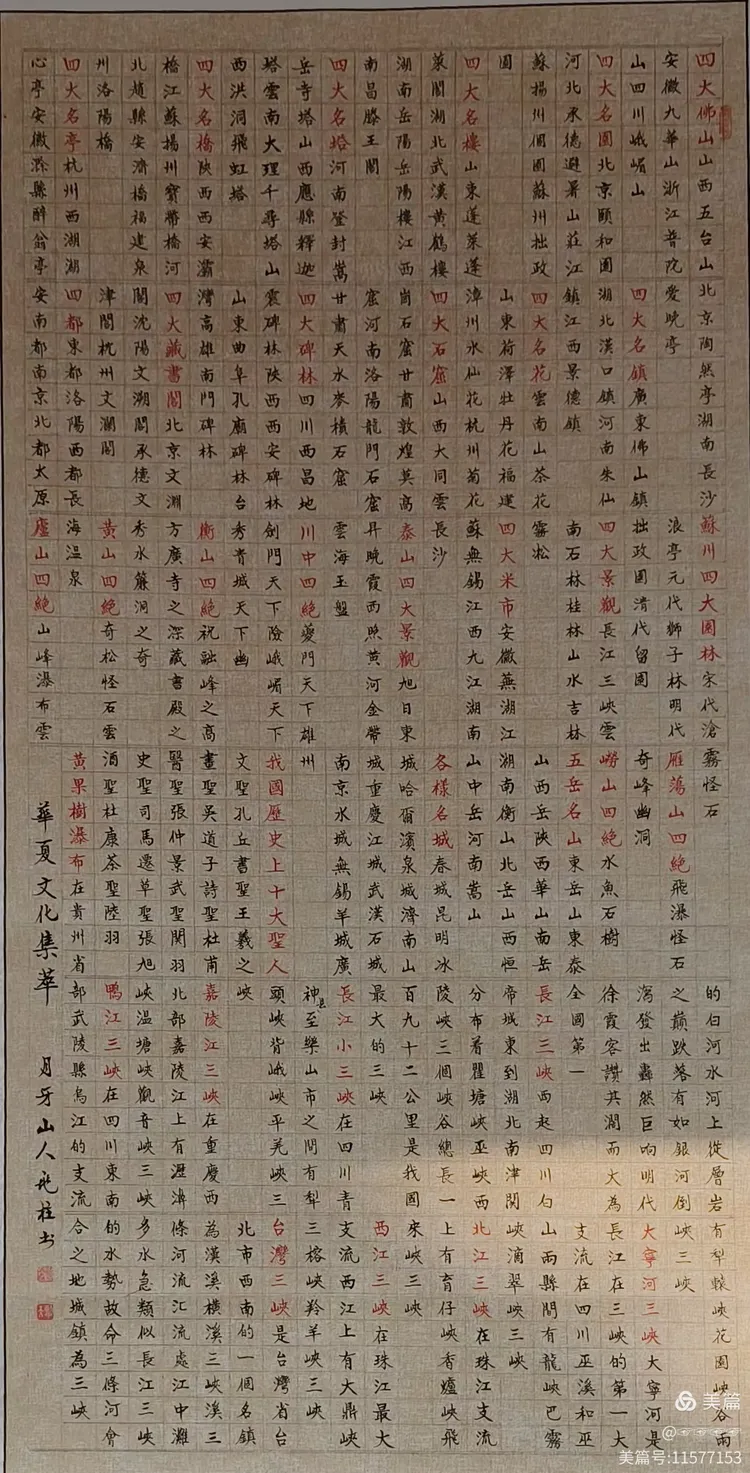 四大佛山山西五台山
安徽九華山浙江普陀
山四川峨嵋山
四大名園北京頤和園
河北承德避暑山莊江
蘇揚州個園蘇州拙政
園
四大名樓山東蓬萊蓬
萊閣湖北武漢黃鶴樓
湖南岳陽岳陽樓江西
南昌滕王閣
四大名塔河南登封嵩
岳寺塔山西應縣釋迦
塔雲南大理千尋塔山
西洪洞飛虹塔
四大名橋陝西西安灞
橋江蘇揚州寶帶橋河
北趙縣安濟橋福建泉
州洛陽橋
四大名亭杭州西湖湖
心亭安徽滁縣醉翁亭
北京陶然亭湖南長沙
愛晚亭
四大名鎮廣東佛山鎮
湖北漢口鎮河南朱仙
鎮江西景德鎮
四大名花雲南山茶花
山東荷澤牡丹花福建
漳州水仙花杭州菊花
四大石窟山西大同雲
崗石窟甘肅敦煌莫高
窟河南洛陽龍門石窟
甘肅天水麥積石窟
四大碑林四川西昌地
震碑林陝西西安碑林
山東曲阜孔廟碑林台
灣高雄南門碑林
四大藏書閣北京文淵
閣沈陽文溯閣承德文
津閣杭州文瀾閣
四都東都洛陽西都長
安南都南京北都太原
蘇川四大園林宋代滄
浪亭元代獅子林明代
拙政園清代留園
四大景觀長江三峽雲
南石林桂林山水吉林
霧松
四大米市安徽蕪湖江
蘇無錫江西九江湖南
長沙
泰山四大景觀旭日東
升晚霞西照黃河金帶
雲海玉盤
川中四絕夔門天下雄
劍門天下險峨嵋天下
秀青城天下幽
衡山四絕祝融峰之高
方廣寺之深藏書殿之
秀水簾洞之奇
黃山四絕奇松怪石雲
海溫泉
廬山四絕山峰瀑布雲
霧怪石
雁蕩山四絕飛瀑怪石
奇峰幽洞
嶗山四絕水魚石樹
五岳名山東岳山東泰
山西岳陝西華山南岳
湖南衡山北岳山西恒
山中岳河南嵩山
各樣名城春城昆明冰
城哈爾濱泉城濟南山
城重慶江城武漢石城
南京水城無錫羊城廣
州
我國歷史上十大聖人
文聖孔丘書聖王羲之
畫聖吳道子詩聖杜甫
醫聖張仲景武聖關羽
史聖司馬遷草聖張旭
酒聖杜康茶聖陸羽
黃果樹瀑布在貴州省
的白河水河上從層岩
之巔跌落有如銀河倒
瀉發出轟然巨响明代
徐霞客讚其瀾而大為
全國第一
長江三峽西起四川白
帝城東到湖北南津關
分布着瞿塘峽巫峽西
陵峽三個峽谷總長一
百九十二公里是我國
最大的三峽
長江小三峽在四川青
神縣至樂山市之間有犁
頭峽背峨峽平羌峽三
峽
嘉陵江三峽在重慶西
北部嘉陵江上有
峽溫塘峽觀音峽三峽
鴨江三峽在四川東南
部武陵縣烏江的支流
有犁轅峽花園峽谷兩
峽三峽
大寧河三峽大寧河是
長江在三峽的第一大
支流在四川巫溪和巫
山兩縣間有龍峽巴霧
峽滴翠峽三峽
北江三峽在珠江支流
上有育仔峽香爐峽飛
來峽三峽
西江三峽在珠江最大
支流西江上有大鼎峽
三榕峽羚羊峽三峽
台灣三峽是台灣省台
北市西南的一個名鎮
為漢溪橫溪三峽溪三
條河流匯流處江中灘
多水急類似長江三峽
的水勢故命三條河會
合之地城鎮為三峽
華夏文化集萃
月牙山人柱書
美篇
美篇号:11577153